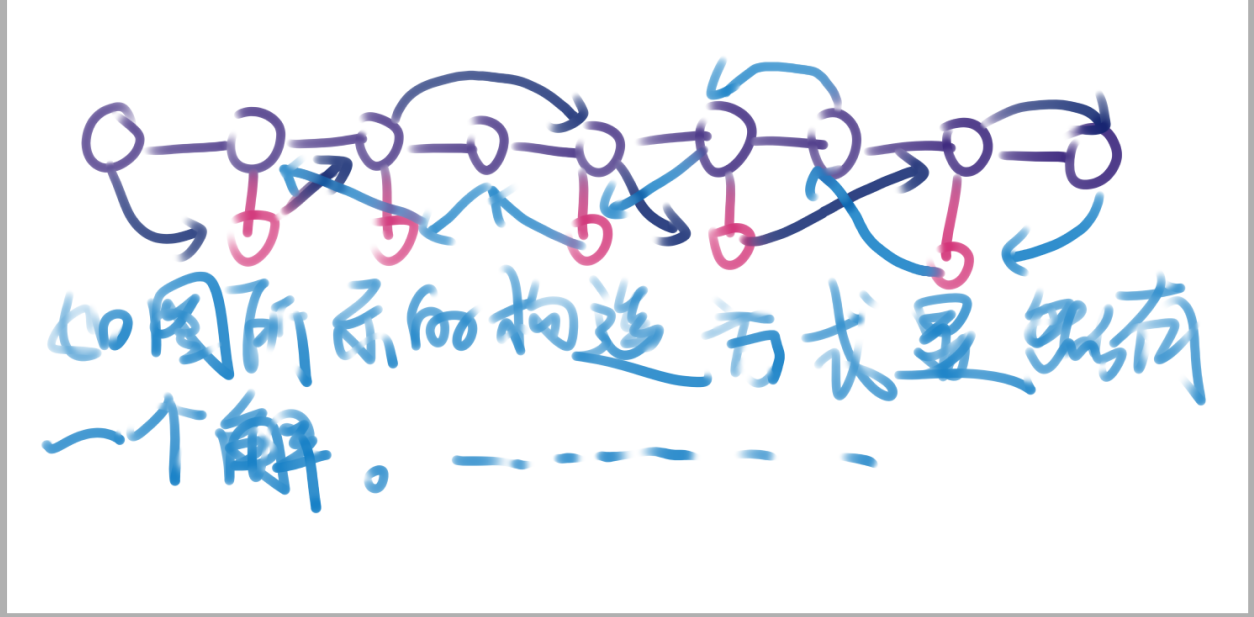 如图所示的构造方式显然有
一个解。